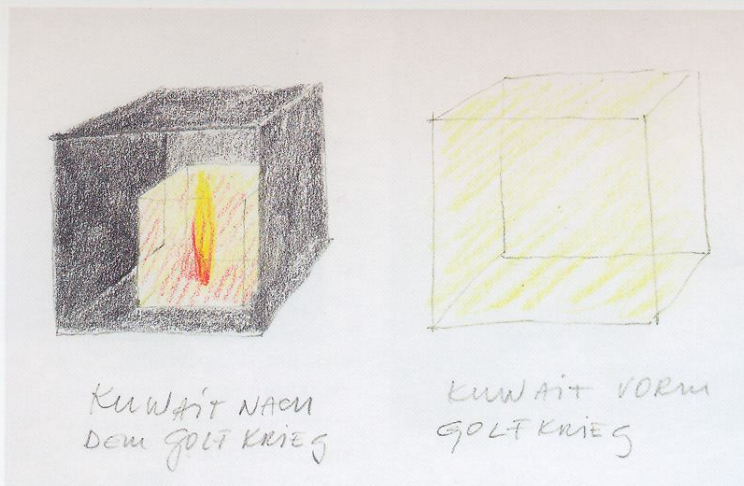 KUWAIT NACH
DEM GOLFKRIEG
KUWAIT VORM
GOLFKRIEG